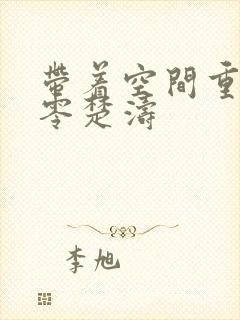 帶着空間重
零楚濤
李旭